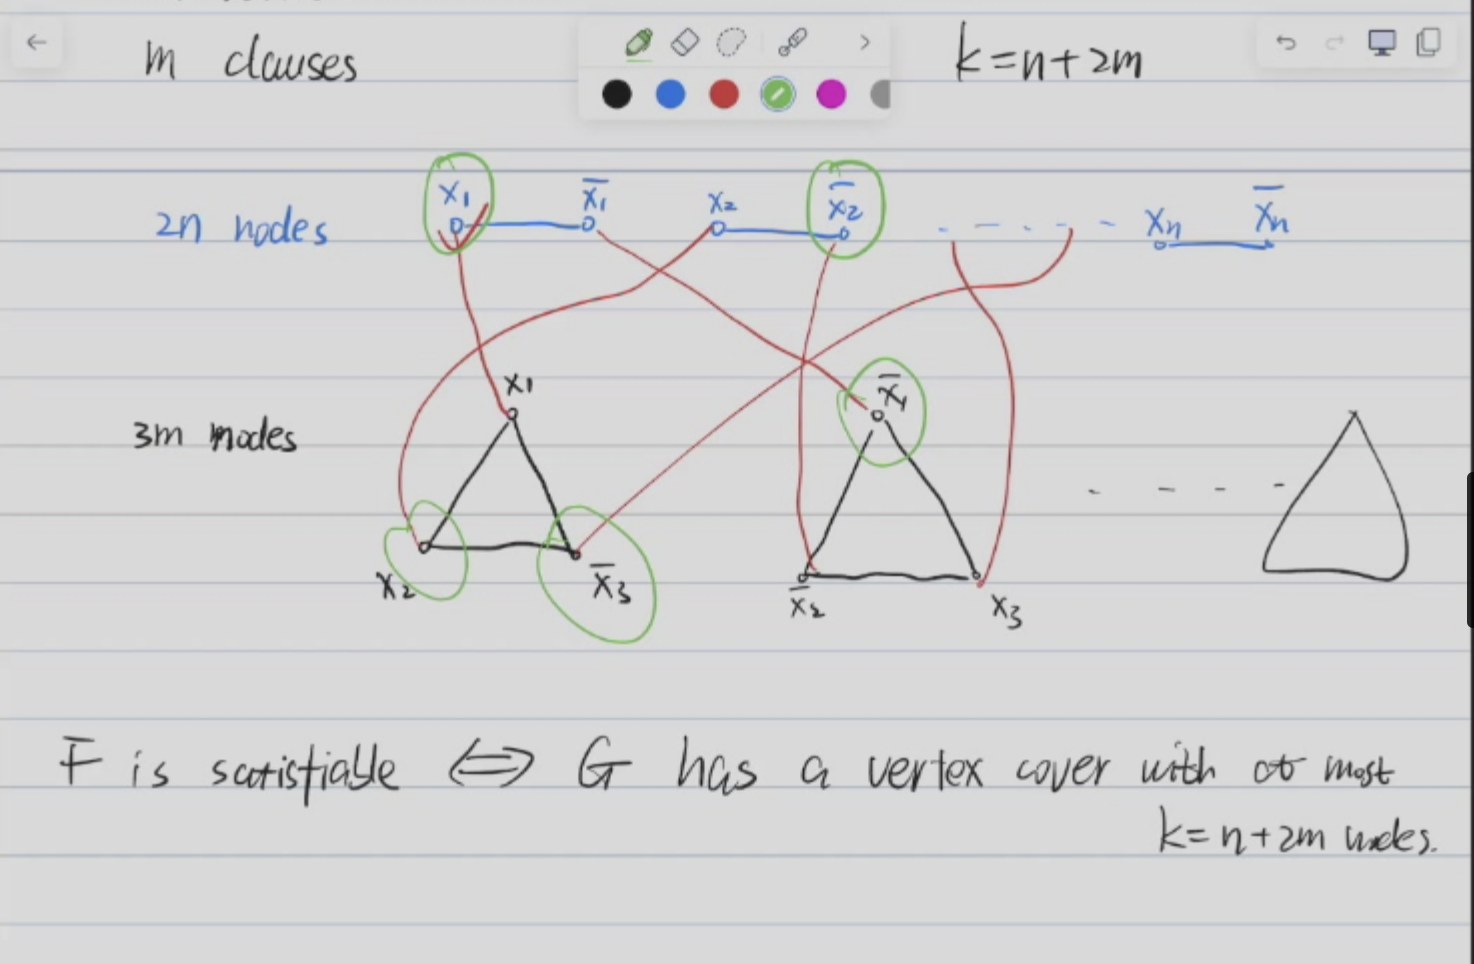 m clauses k=n+2m
2n nodes x₁ x̄₁ x₂ x̄₂ - - - - xₙ x̄ₙ
x₁ x̄₁
3m nodes - - - -
x₂ x̄₃ x̄₂ x₃
F is satisfiable ⟺ G has a vertex cover with at most
k=n+2m nodes.